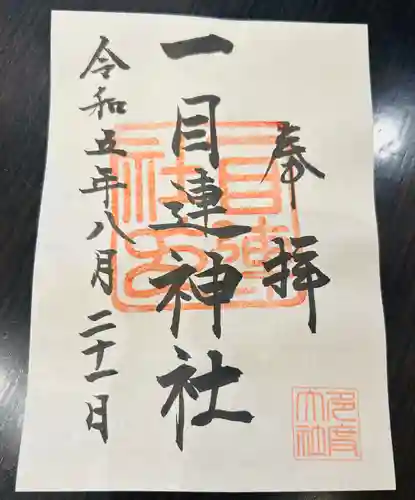 奉拝
一目連神社
令和五年八月二十一日
一目連神社印
多度大社